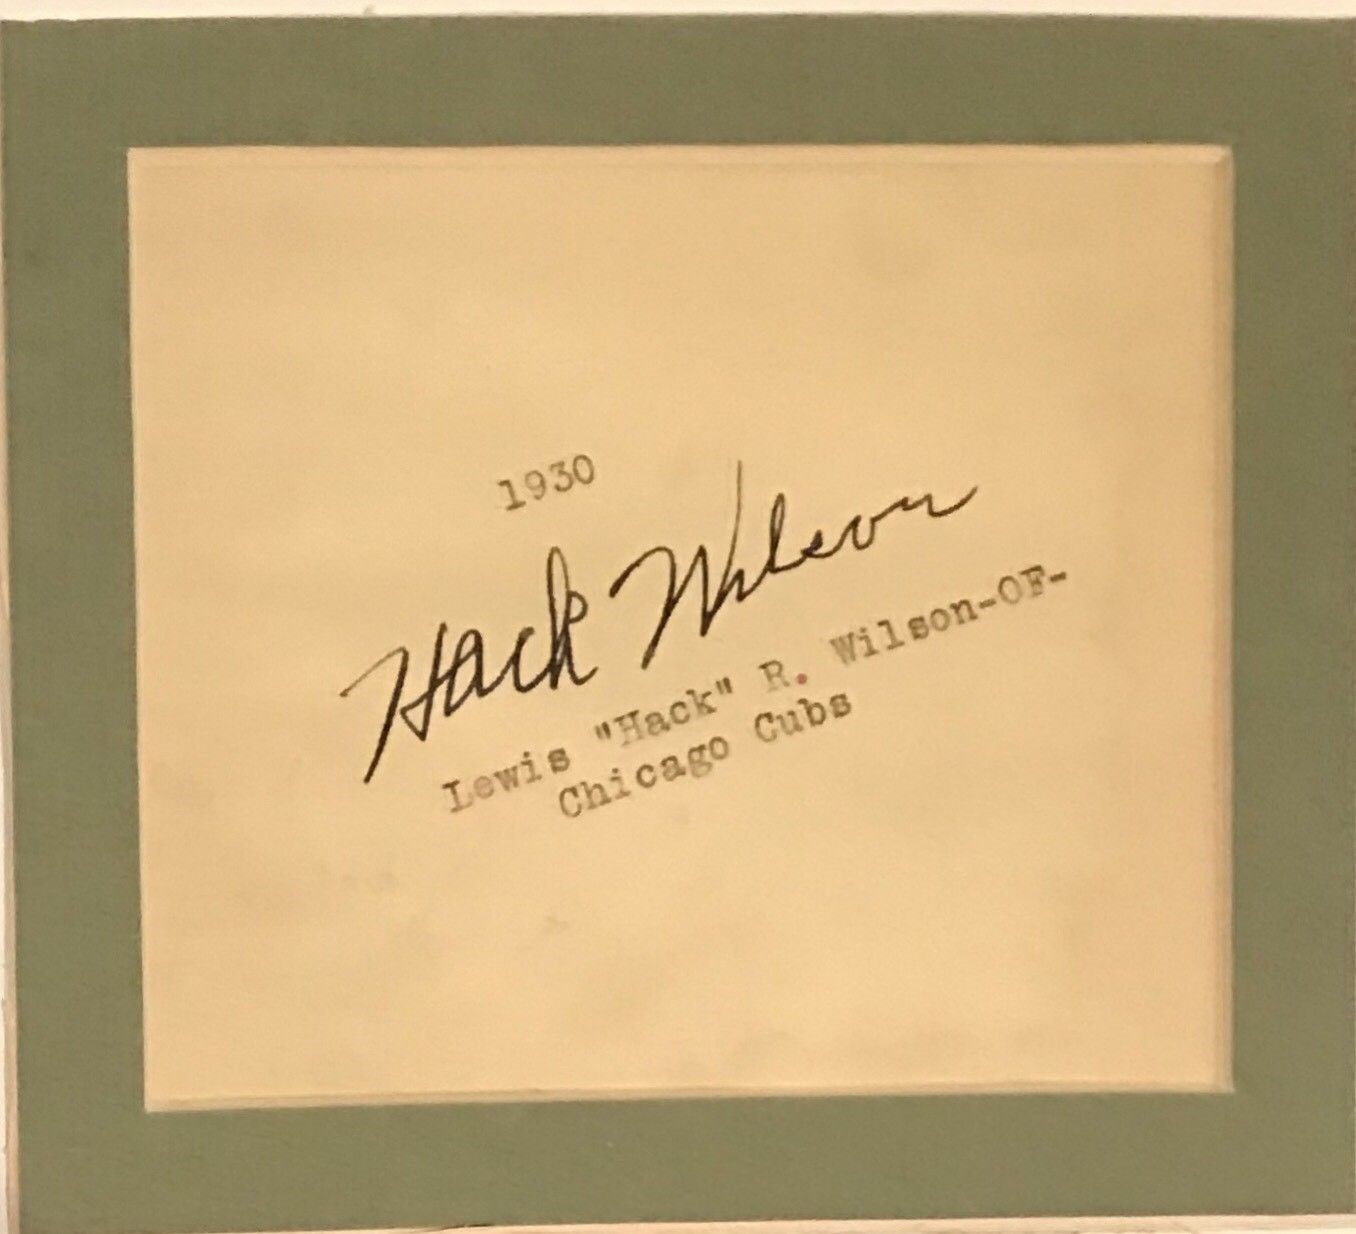 1930
Hack Wilson
Lewis "Hack" R. Wilson-OF-
Chicago Cubs